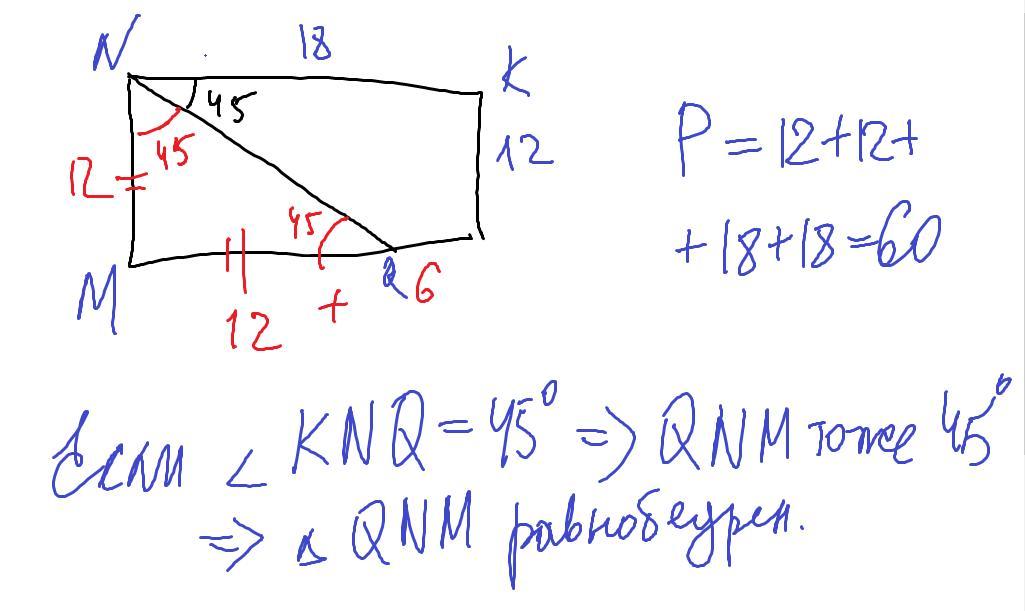 N 18 K
45
45
12
12
45
M Q 6
12 +
P = 12+12+
+18+18=60
Если ∠ KNQ = 45° => QNM тоже 45°
=> △ QNM равнобедрен.